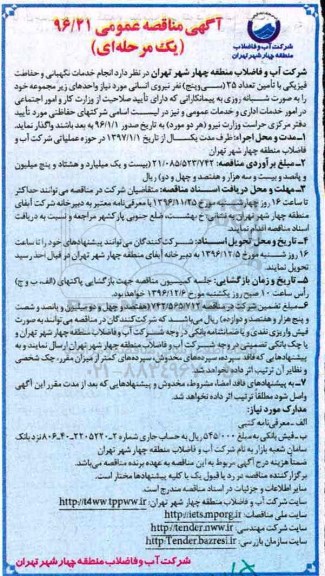 آگهی مناقصه عمومی ۹۶/۲۱
(یک مرحله‌ای)
شرکت آب و فاضلاب
منطقه چهار شهر تهران
شرکت آب و فاضلاب منطقه چهار شهر تهران در نظر دارد انجام خدمات نگهبانی و حفاظت
فیزیکی با تأمین تعداد ۳۵ (سی‌وپنج) نفر نیروی انسانی مورد نیاز واحدهای زیر مجموعه خود
را به صورت شبانه روزی به پیمانکارانی که دارای تأیید صلاحیت از وزارت کار و امور اجتماعی
در امور خدمات اداری و خدمات عمومی و نیز در لیست اسامی شرکتهای حفاظتی مورد تأیید
دفتر مرکزی حراست وزارت نیرو (هر دو مورد) به تاریخ صدور ۹۶/۱/۱ به بعد باشند واگذار نماید.
۱ـ مدت و محل اجرا: ظرف مدت یکسال از تاریخ ۱۳۹۷/۱/۱ در حوزه عملیاتی شرکت آب و
فاضلاب منطقه چهار شهر تهران
۲ـ مبلغ برآوردی مناقصه: ۲۱/۰۸۵/۵۲۳/۷۴۲ (بیست و یک میلیارد و هشتاد و پنج میلیون
و پانصد و بیست و سه هزار و هفتصد و چهل و دو) ریال
۳ـ مهلت و محل دریافت اسناد مناقصه: متقاضیان شرکت در مناقصه می توانند حداکثر
تا ساعت ۱۶ روز چهارشنبه مورخ ۱۳۹۶/۱۱/۲۵ با معرفی‌نامه معتبر به دبیرخانه شرکت آبفای
منطقه چهار شهر تهران به نشانی خ بهشت، ضلع جنوبی پارکشهر مراجعه و نسبت به دریافت
اسناد مناقصه اقدام نمایند.
۴ـ تاریخ و محل تحویل اسناد: شرکت‌کنندگان می توانند پیشنهادهای خود را تا ساعت
۱۶ روز شنبه مورخ ۱۳۹۶/۱۲/۵ به دبیرخانه آبفای منطقه چهار شهر تهران در قبال اخذ رسید
تحویل نمایند.
۵ـ تاریخ و زمان بازگشایی: جلسه کمیسیون مناقصه جهت بازگشایی پاکتهای (الف، ب و ج)
رأس ساعت ۱۰ صبح روز یکشنبه مورخ ۱۳۹۶/۱۲/۶ خواهد بود.
۶ـ مبلغ تضمین شرکت در مناقصه ۷۴۲/۵۶۵/۷۱۲ (هفتصد و چهل و دو میلیون و پانصد و شصت
و پنج هزار و هفتصد و دوازده) ریال می‌باشد که شرکت‌کنندگان در مناقصه می توانند به صورت
فیش واریزی نقدی و یا ضمانتنامه بانکی در وجه شرکت آب و فاضلاب منطقه چهار شهر تهران و
یا چک بانکی تضمینی در وجه شرکت آب و فاضلاب منطقه چهار شهر تهران ارسال نمایند و به
پیشنهادهایی که فاقد سپرده، سپرده‌های مخدوش، سپرده‌های کمتر از میزان مقرر، چک شخصی
و نظایر آن ترتیب اثر داده نخواهد شد.
۷ـ به پیشنهادهای فاقد امضا، مشروط، مخدوش و پیشنهادهایی که بعد از مدت مقرر این آگهی
واصل شود مطلقاً ترتیب اثر داده نخواهد شد.
مدارک مورد نیاز:
الف ـ معرفی‌نامه کتبی
ب ـ فیش بانکی به مبلغ ۵۴۵/۰۰۰ ریال به حساب جاری شماره ۲ـ۲۲۰۵۲۲۰ـ۴۰ـ۸۰۶ نزد بانک
سامان شعبه بازار به نام شرکت آب و فاضلاب منطقه چهار شهر تهران
ضمناً هزینه درج آگهی مربوط به این مناقصه به عهده برنده مناقصه می‌باشد.
برگزارکننده مناقصه در رد یا قبول یک یا کلیه پیشنهادها مختار است.
سایر اطلاعات و جزئیات در اسناد مناقصه مندرج است.
سایت شرکت آب و فاضلاب منطقه چهار شهر تهران: http://t4ww.tppww.ir
سایت ملی مناقصات: http://iets.mporg.ir
سایت شرکت مهندسی: http://tender.nww.ir
سایت سازمان بازرسی: http:Tender.bazresi.ir
شرکت آب و فاضلاب منطقه چهار شهر تهران